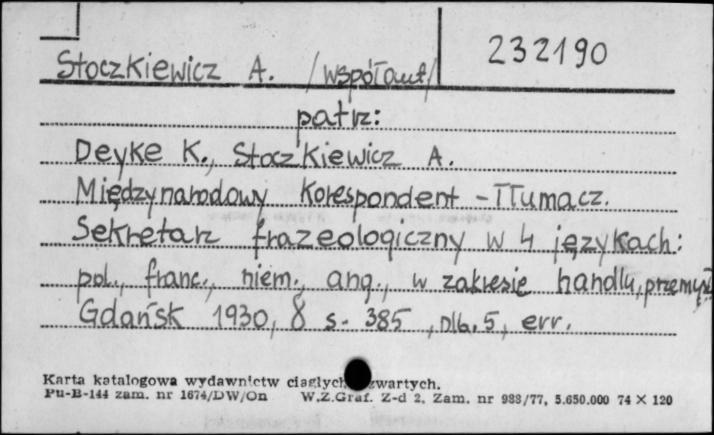 232190
Stoczkiewicz A. /współaut/
patrz:
Deyke K., Stoczkiewicz A.
Międzynarodowy Korespondent - Tłumacz.
Sekretarz frazeologiczny w 4 językach:
pol., franc., niem., ang., w zakresie handlu, przemysł
Gdańsk 1930, 8 s. 385, nlb. 5, err.
Karta katalogowa wydawnictw ciągłych zwartych.
Pu-B-144 zam. nr 1674/DW/On W.Z.Graf. Z-d 2, Zam. nr 988/77, 5.650.000 74 × 120